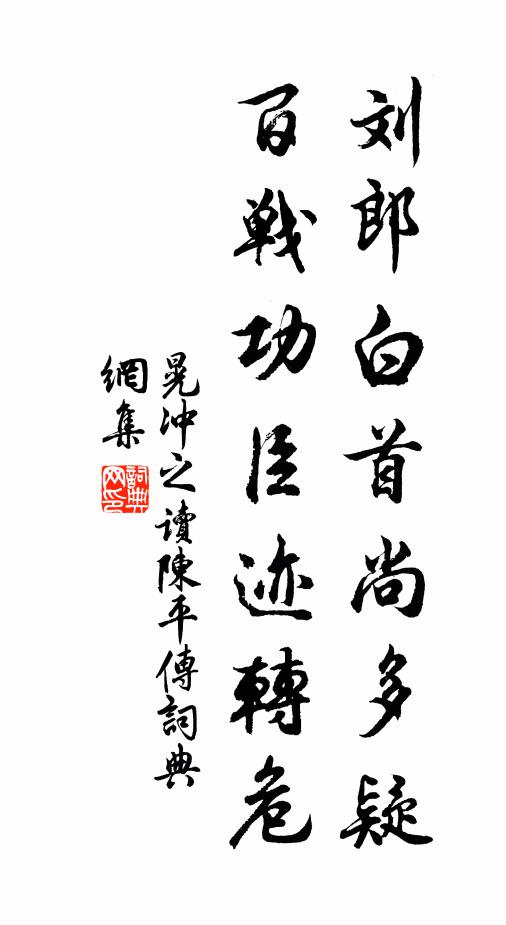 刘郎白首尚多疑
百戦功臣迹轉危
晃冲之读陳平傳詞典
網集
詞典网印